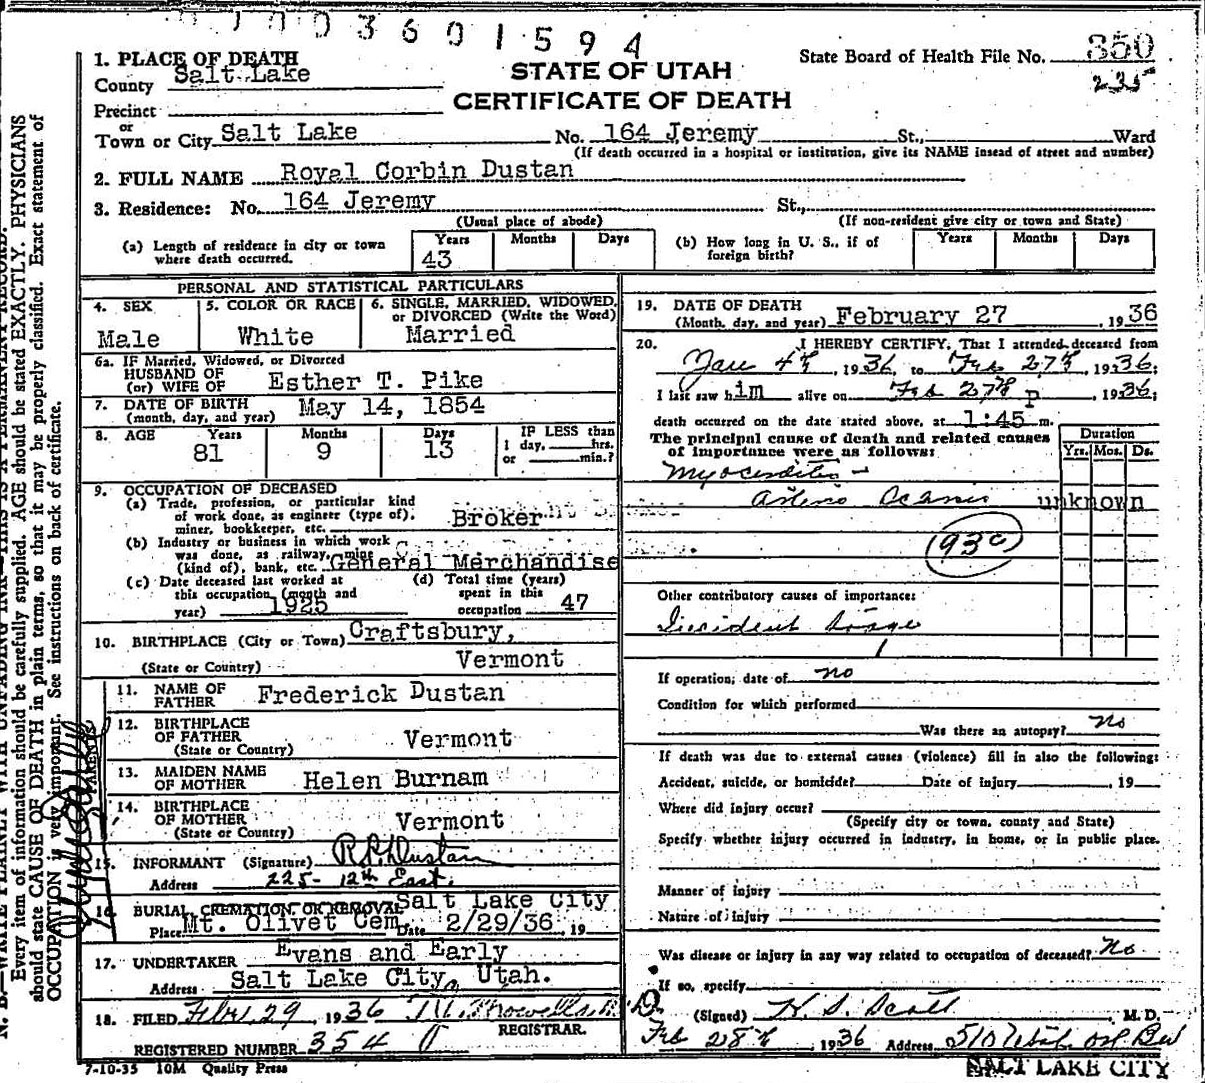 3601594
1. PLACE OF DEATH
County Salt Lake
State Board of Health File No. 350
235
STATE OF UTAH
CERTIFICATE OF DEATH
Precinct
or
Town or City Salt Lake No. 164 Jeremy St., Ward
(If death occurred in a hospital or institution, give its NAME insead of street and number)
2. FULL NAME Royal Corbin Dustan
3. Residence: No. 164 Jeremy St.,
(Usual place of abode) (If non-resident give city or town and State)
(a) Length of residence in city or town where death occurred. Years 43 Months Days
(b) How long in U. S., if of foreign birth? Years Months Days
PERSONAL AND STATISTICAL PARTICULARS
4. SEX Male
5. COLOR OR RACE White
6. SINGLE, MARRIED, WIDOWED, or DIVORCED (Write the Word) Married
6a. IF Married, Widowed, or Divorced
HUSBAND OF
(or) WIFE OF Esther T. Pike
7. DATE OF BIRTH
(month, day, and year) May 14, 1854
8. AGE Years 81 Months 9 Days 13 IF LESS than
1 day, hrs.
or min.?
9. OCCUPATION OF DECEASED
(a) Trade, profession, or particular kind
of work done, as engineer (type of),
miner, bookkeeper, etc. Broker
(b) Industry or business in which work
was done, as railway, mine
(kind of), bank, etc. General Merchandise
(c) Date deceased last worked at
this occupation (month and
year) 1925
(d) Total time (years)
spent in this
occupation 47
10. BIRTHPLACE (City or Town) Craftsbury,
(State or Country) Vermont
PARENTS
11. NAME OF
FATHER Frederick Dustan
12. BIRTHPLACE
OF FATHER
(State or Country) Vermont
13. MAIDEN NAME
OF MOTHER Helen Burnam
14. BIRTHPLACE
OF MOTHER
(State or Country) Vermont
15. INFORMANT (Signature) R.R. Dustan
Address 225- 12th East.
16. BURIAL, CREMATION, OR REMOVAL Salt Lake City
Place Mt. Olivet Cem. Date 2/29/36, 19
17. UNDERTAKER Evans and Early
Address Salt Lake City, Utah.
18. FILED Febr. 29, 1936
REGISTRAR.
REGISTERED NUMBER 354
7-10-35 10M Quality Press
19. DATE OF DEATH
(Month, day, and year) February 27, 1936
20. I HEREBY CERTIFY, That I attended deceased from
Jan 4th, 1936, to Feb 27th, 1936;
I last saw him alive on Feb 27th, 1936;
death occurred on the date stated above, at 1:45 p m.
The principal cause of death and related causes
of importance were as follows:
Duration
Yrs. Mos. Ds.
Myocarditis -
Arterio unknown
93c
Other contributory causes of importance:
If operation, date of no
Condition for which performed
Was there an autopsy? no
If death was due to external causes (violence) fill in also the following:
Accident, suicide, or homicide? Date of injury, 19
Where did injury occur?
(Specify city or town, county and State)
Specify whether injury occurred in industry, in home, or in public place.
Manner of injury
Nature of injury
Was disease or injury in any way related to occupation of deceased? No
If so, specify
(Signed) K. S. Scott M. D.
Feb 28th, 1936 Address 510
SALT LAKE CITY
N. B.—WRITE PLAINLY WITH UNFADING INK—THIS IS A PERMANENT RECORD.
Every item of information should be carefully supplied. AGE should be stated EXACTLY. PHYSICIANS
should state CAUSE OF DEATH in plain terms, so that it may be properly classified. Exact statement of
OCCUPATION is very important. See instructions on back of certificate.